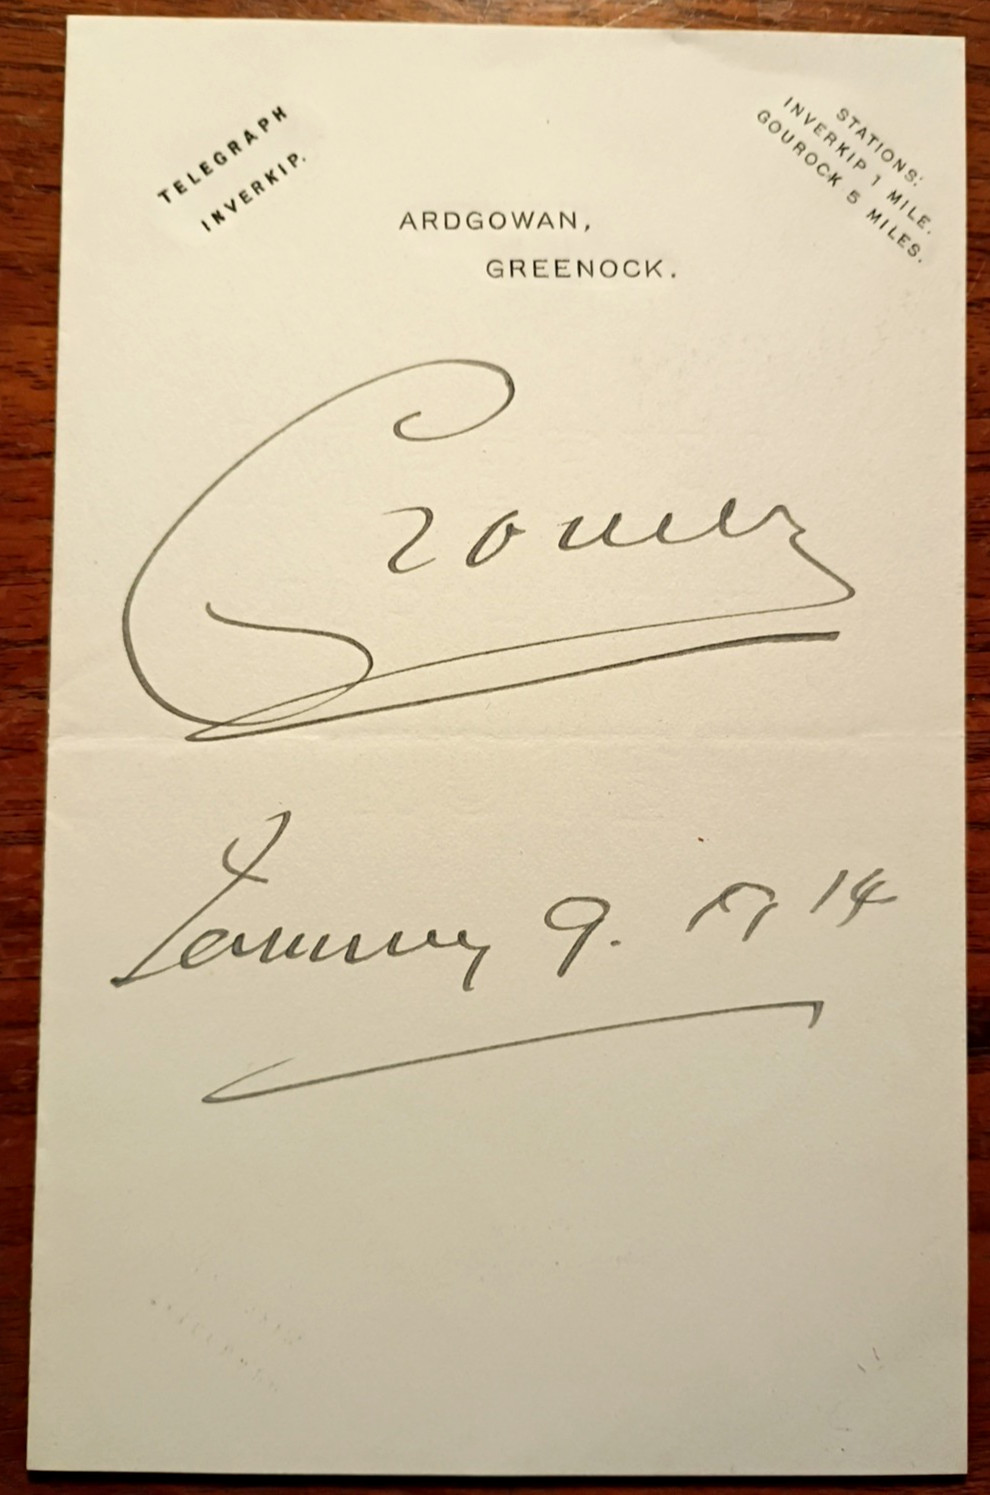 TELEGRAPH
INVERKIP.
STATIONS:
INVERKIP 1 MILE.
GOUROCK 5 MILES.
ARDGOWAN,
GREENOCK.
Cromer
January 9. 1914